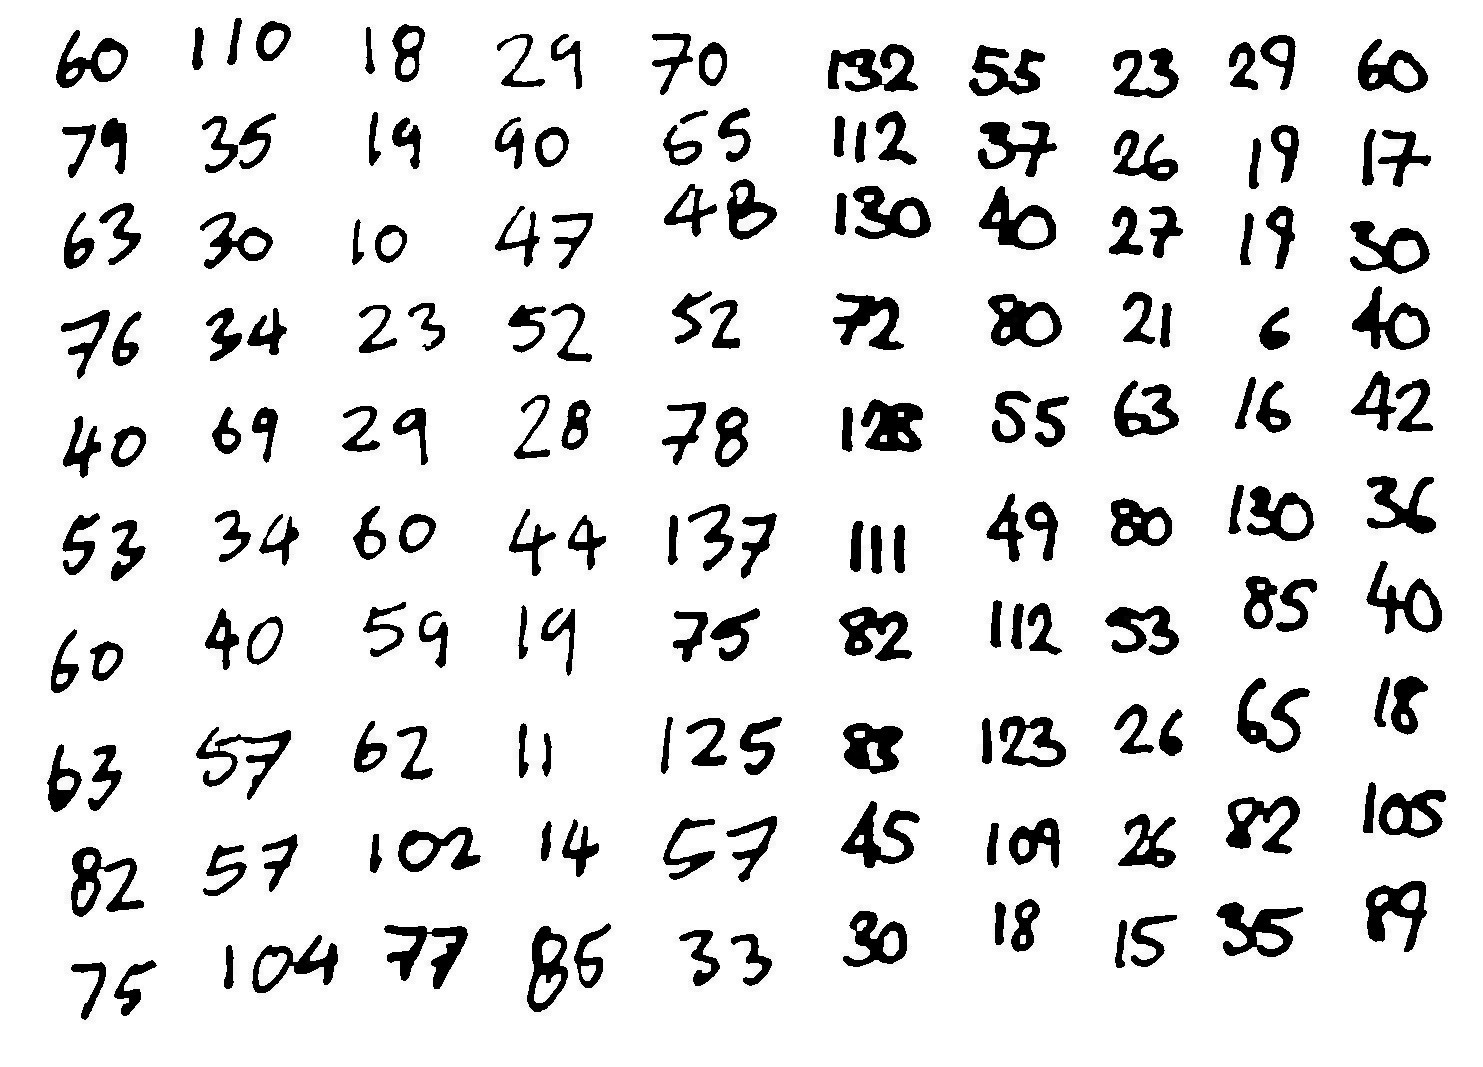 60 110 18 29 70 132 55 23 29 60
79 35 19 90 65 112 37 26 19 17
63 30 10 47 48 130 40 27 19 30
76 34 23 52 52 72 80 21 6 40
40 69 29 28 78 128 55 63 16 42
53 34 60 44 137 111 49 80 130 36
60 40 59 19 75 82 112 53 85 40
63 57 62 11 125 83 123 26 65 18
82 57 102 14 57 45 109 26 82 105
75 104 77 85 33 30 18 15 35 89